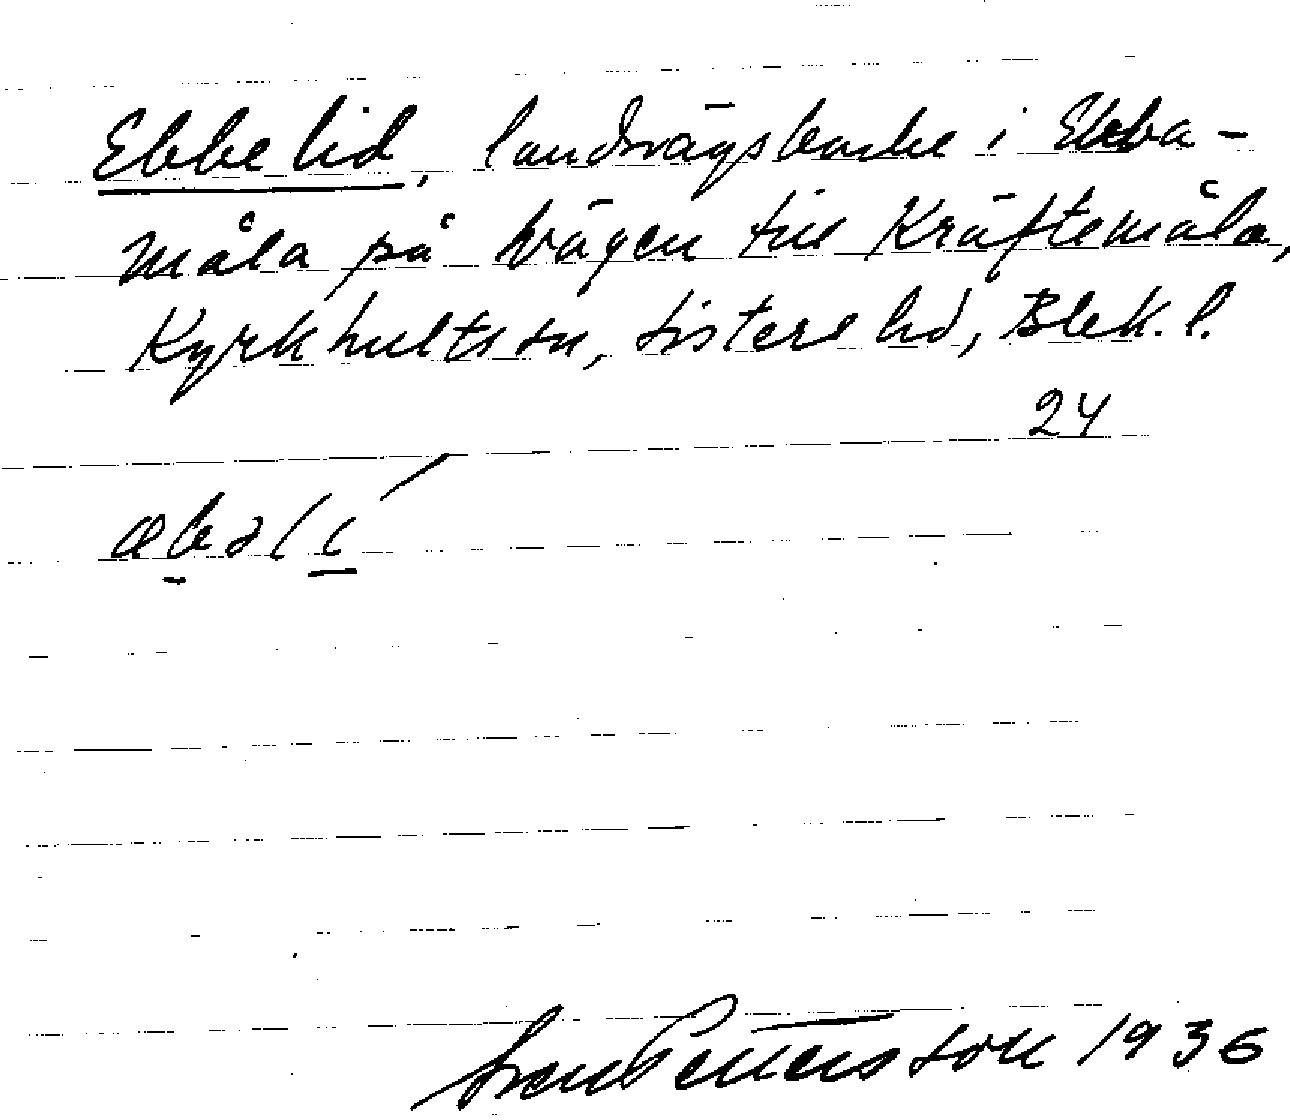 Ebbelid, landsvägsbacke i Ebba-
måla på vägen till Kräftemåla,
Kyrkhults sn, Listers hd, Blek. l.
24
Sven Pettersson 1936